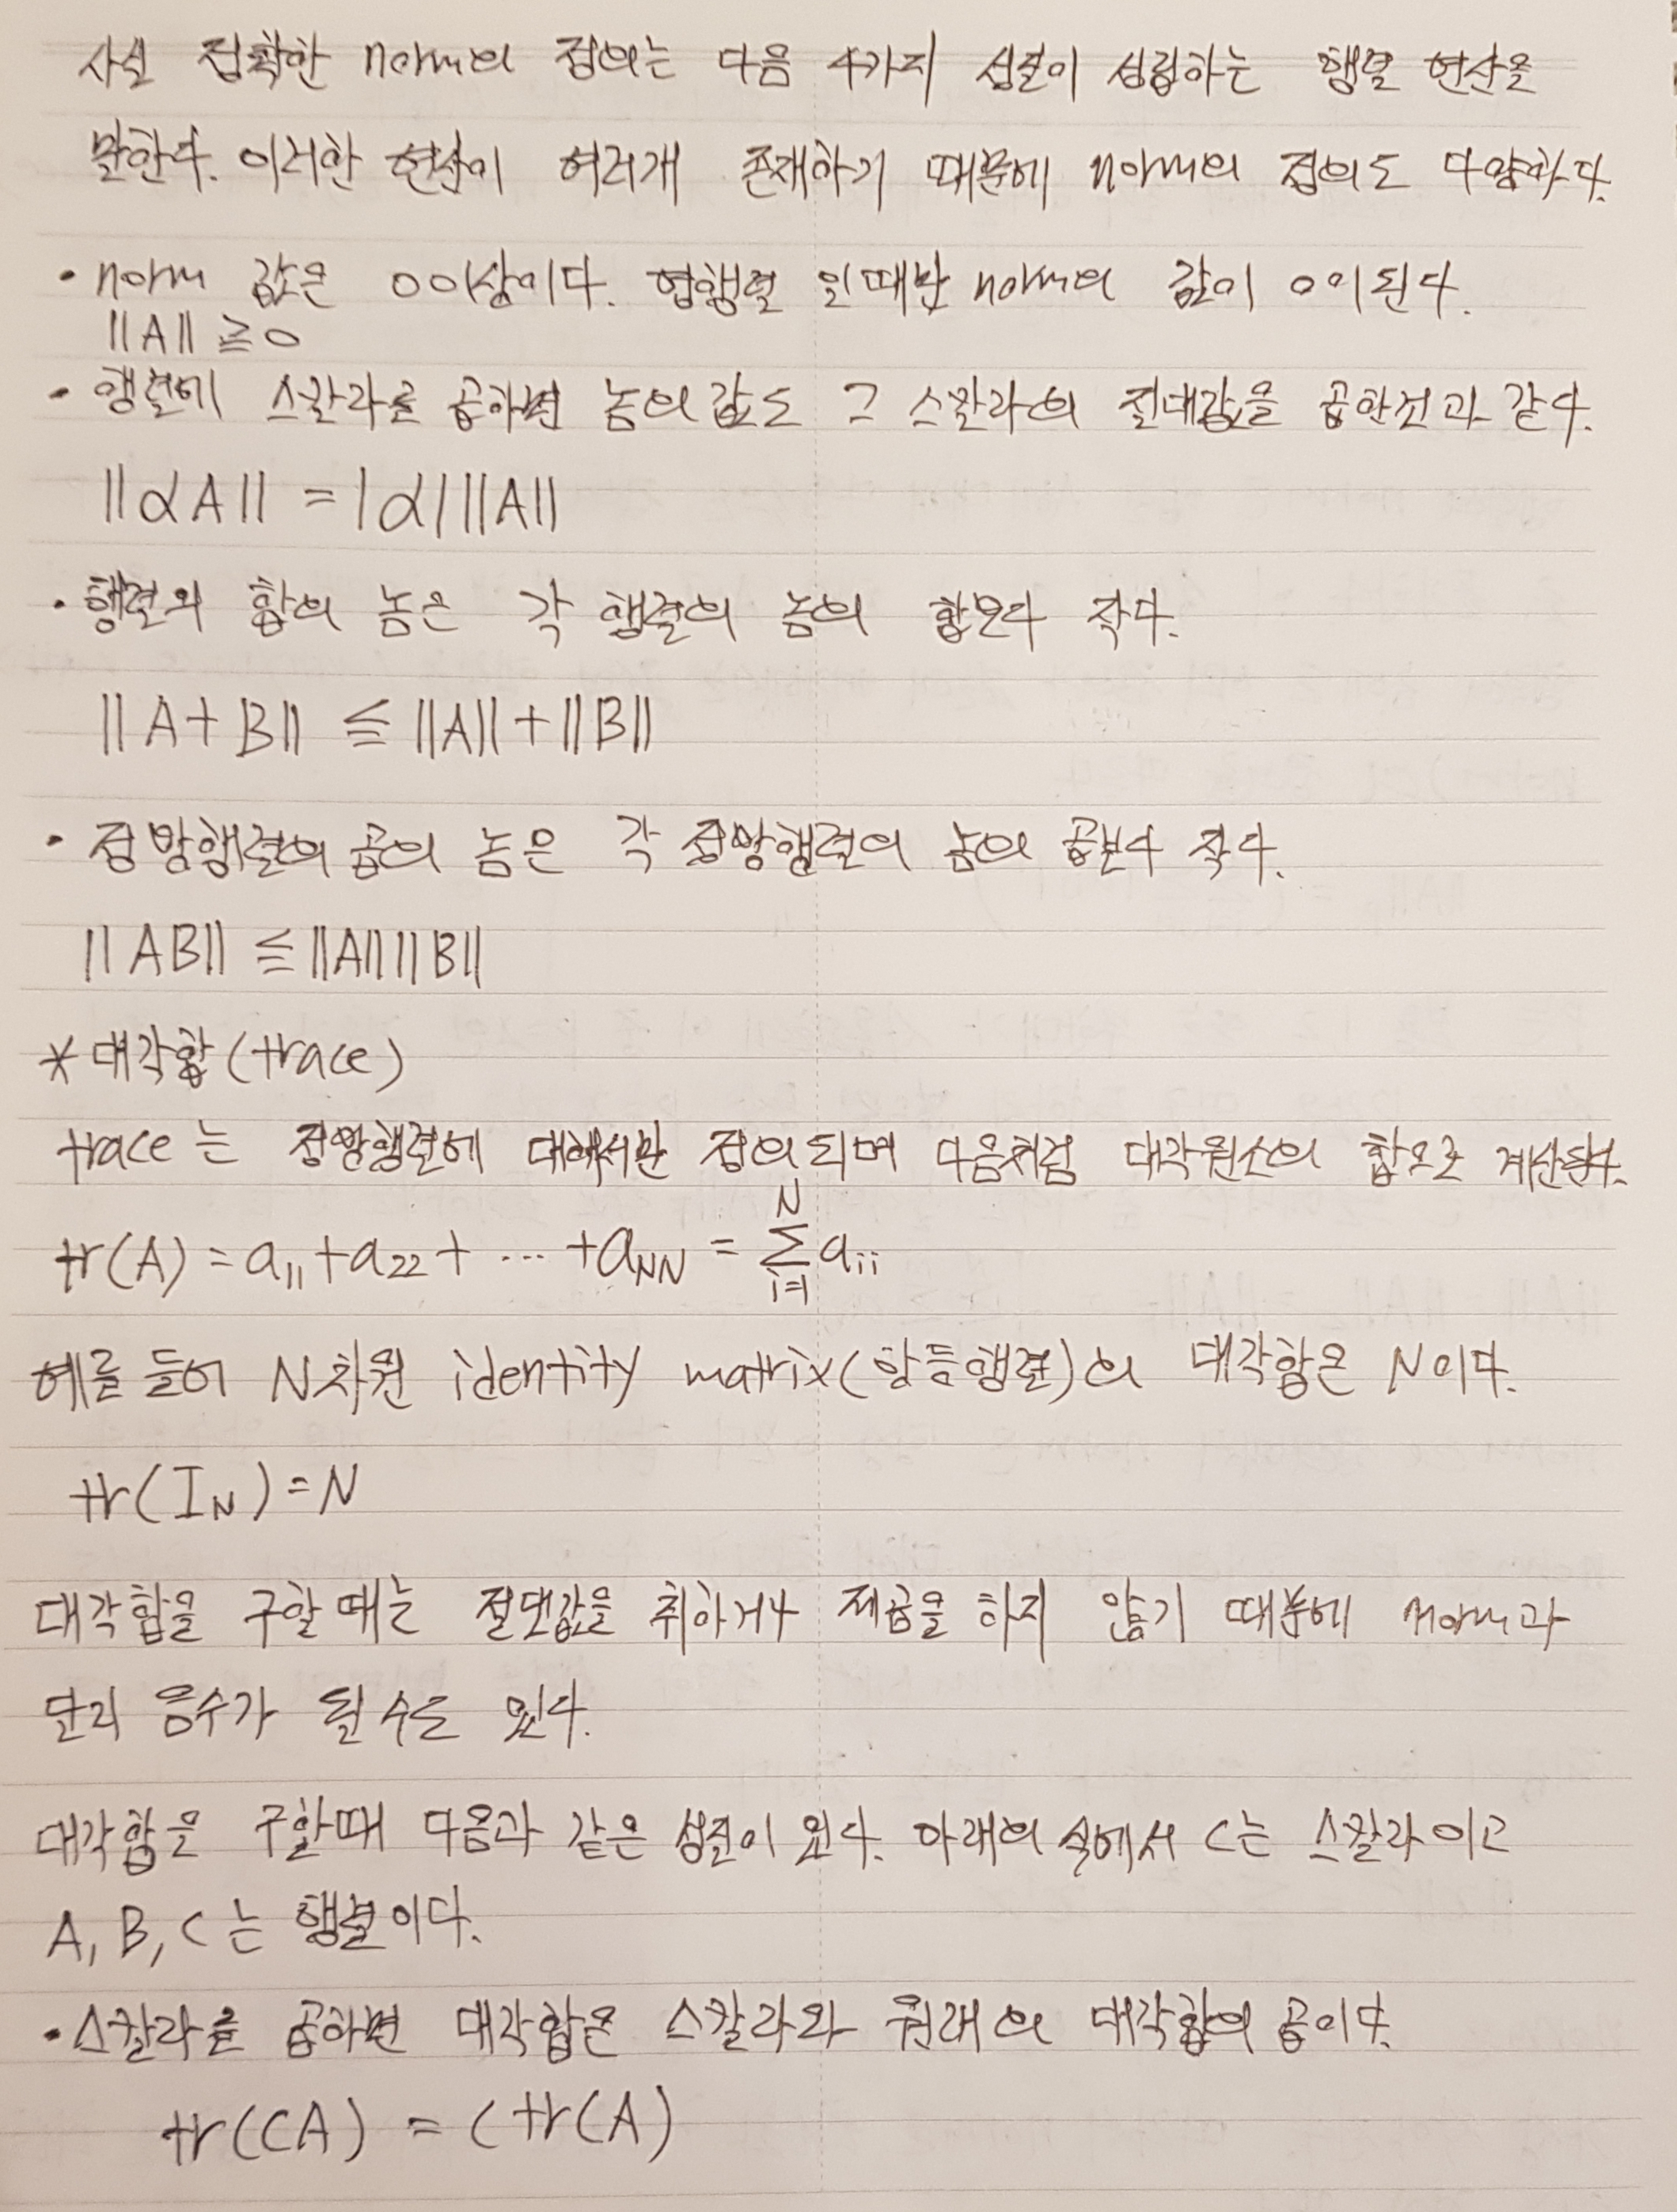 사실 정확한 norm의 정의는 다음 4가지 성질이 성립하는 행렬 연산을
말한다. 이러한 연산이 여러개 존재하기 때문에 norm의 정의도 다양하다.
• norm 값은 0이상이다. 영행렬 일때만 norm의 값이 0이된다.
||A|| ≧ 0
• 행렬에 스칼라를 곱하면 놈의 값도 그 스칼라의 절대값을 곱한것과 같다.
||αA|| = |α| ||A||
• 행렬의 합의 놈은 각 행렬의 놈의 합보다 작다.
||A+B|| ≦ ||A||+||B||
• 정방행렬의 곱의 놈은 각 정방행렬의 놈의 곱보다 작다.
||AB|| ≦ ||A|| ||B||
* 대각합(trace)
trace는 정방행렬에 대해서만 정의되며 다음처럼 대각원소의 합으로 계산된다.
tr(A) = a₁₁+a₂₂+ ... +a_NN = ∑_{i=1}^{N} a_ii
예를 들어 N차원 identity matrix(항등행렬)의 대각합은 N이다.
tr(I_N)=N
대각합을 구할 때는 절댓값을 취하거나 제곱을 하지 않기 때문에 norm과
달리 음수가 될 수도 있다.
대각합을 구할때 다음과 같은 성질이 있다. 아래의 식에서 c는 스칼라이고
A, B, C는 행렬이다.
• 스칼라를 곱하면 대각합은 스칼라와 원래의 대각합의 곱이다.
tr(cA) = c tr(A)